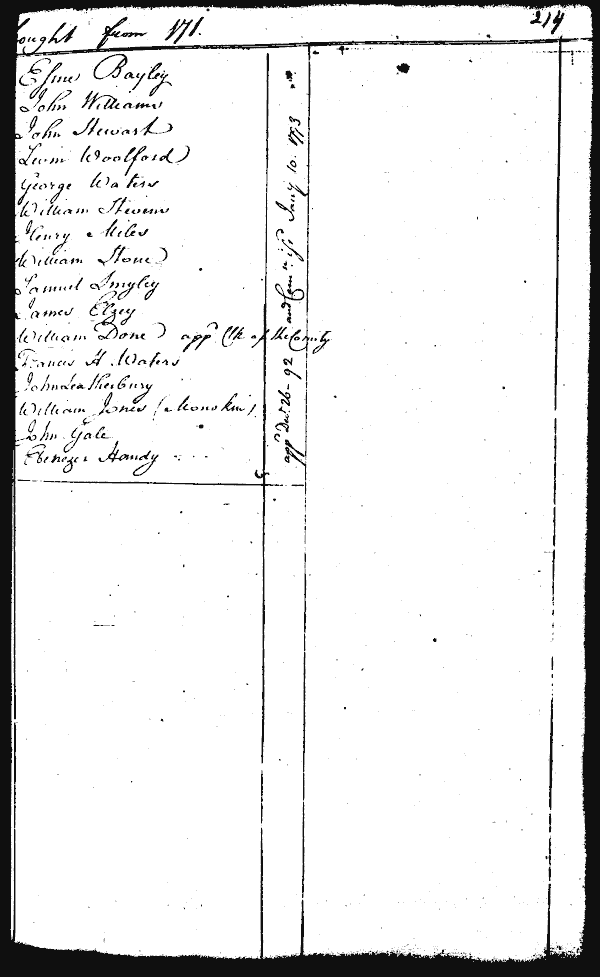 ought from 171.
214
Esme Bayley
John Williams
John Stewart
Levin Woolford
George Waters
William Stevens
Henry Miles
William Stone
Samuel Smyley
James Elzey
William Done appd Clk of the County
Francis H Waters
John Leatherbury
William Jones (Monokin)
John Gale
Ebenezer Handy
appd Decr 26-92 and Comn issd Jany 10. 1793